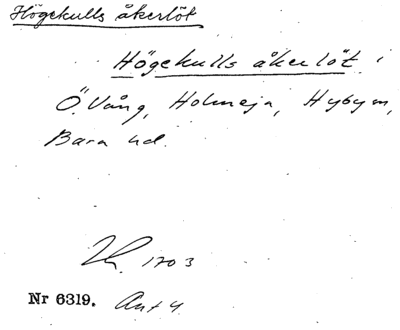 Högekulls åkerlöt
Högekulls åkerlöt i
Ö. Vång, Holmeja, Hyby sn,
Bara hd.
1703
Nr 6319. Ant 4